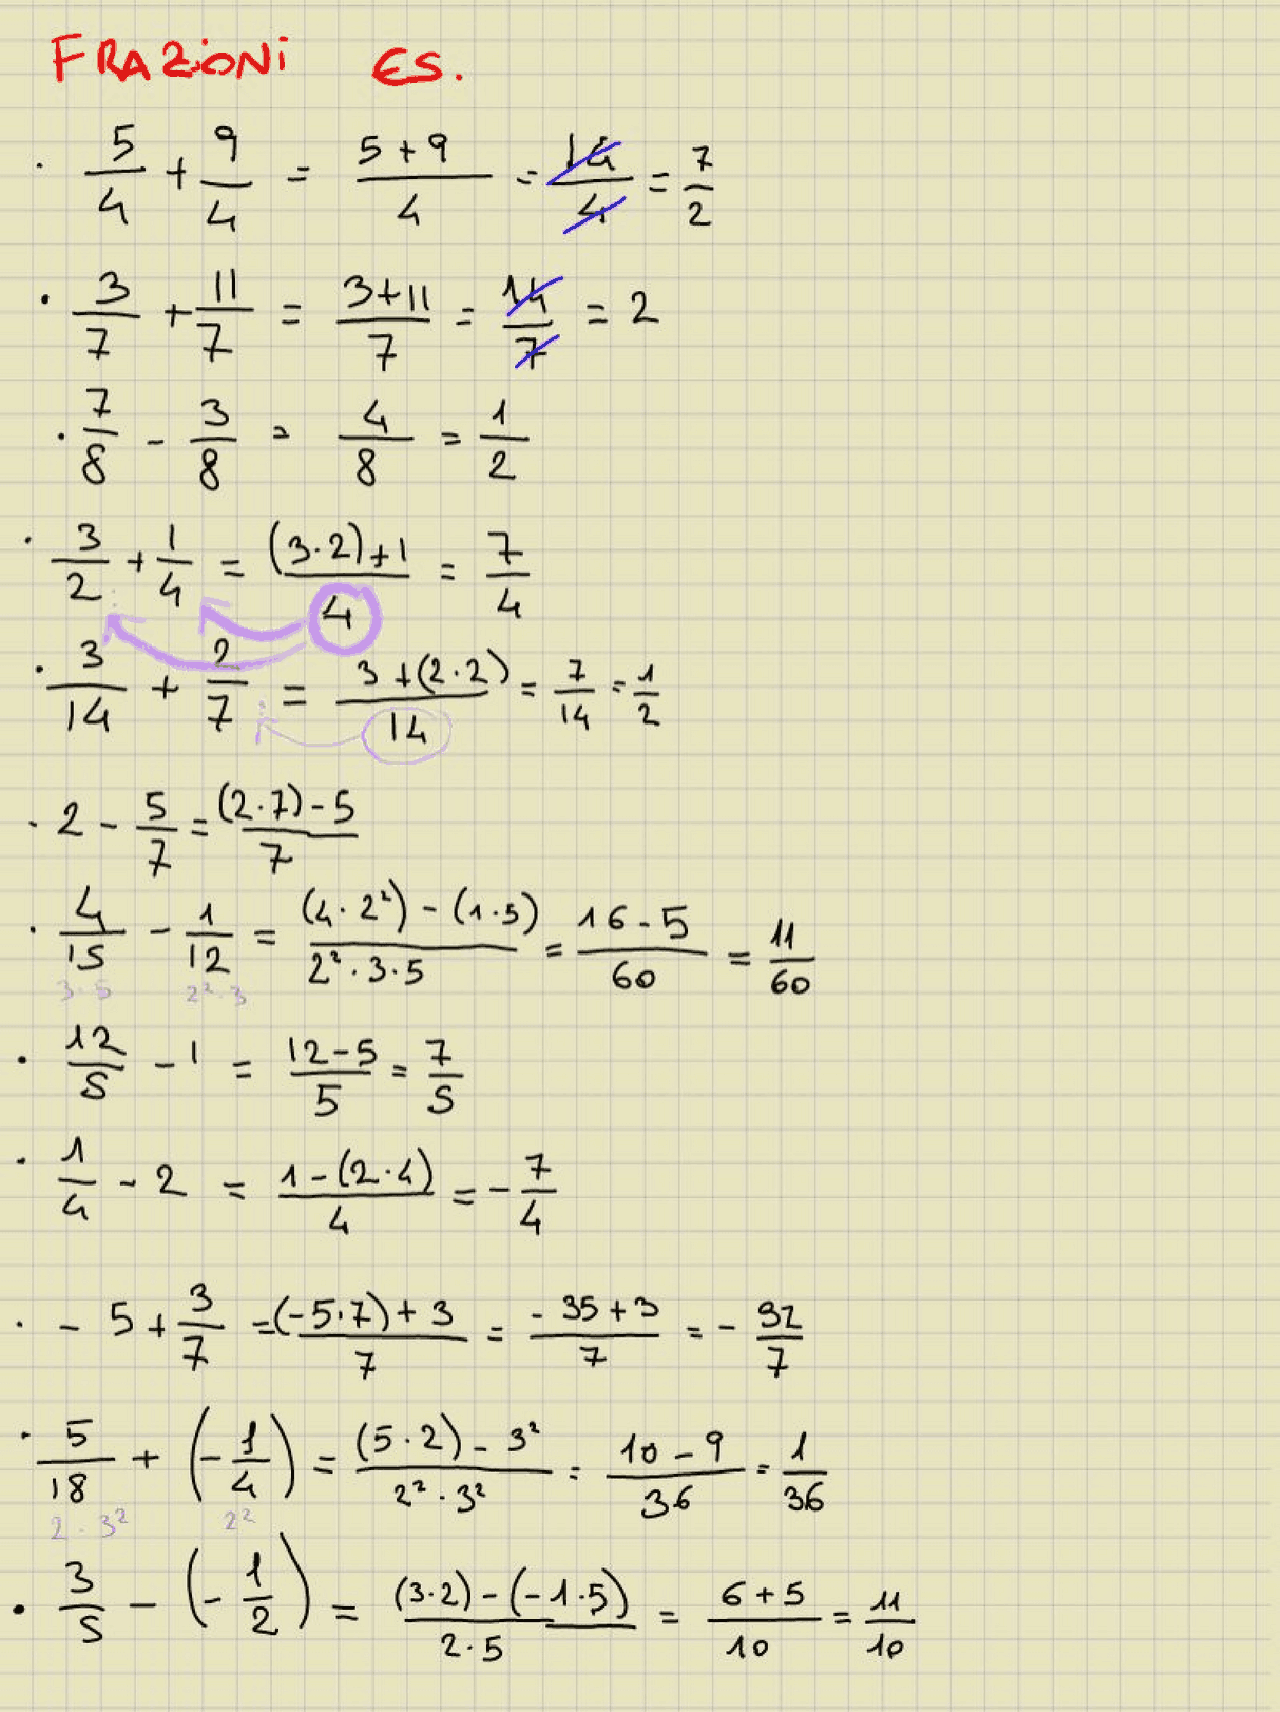 FRAZIONI ES.
· 5/4 + 9/4 = (5+9)/4 = 14/4 = 7/2
· 3/7 + 11/7 = (3+11)/7 = 14/7 = 2
· 7/8 - 3/8 = 4/8 = 1/2
· 3/2 + 1/4 = ((3·2)+1)/4 = 7/4
· 3/14 + 2/7 = (3+(2·2))/14 = 7/14 = 1/2
· 2 - 5/7 = ((2·7)-5)/7
· 4/15 - 1/12 = ((4·2²)-(1·5))/(2²·3·5) = (16-5)/60 = 11/60
3·5 2²·3
· 12/5 - 1 = (12-5)/5 = 7/5
· 1/4 - 2 = (1-(2·4))/4 = -7/4
· - 5 + 3/7 = ((-5·7)+3)/7 = (-35+3)/7 = -32/7
· 5/18 + (-1/4) = ((5·2)-3²)/(2²·3²) = (10-9)/36 = 1/36
2·3² 2²
· 3/5 - (-1/2) = ((3·2)-(-1·5))/(2·5) = (6+5)/10 = 11/10